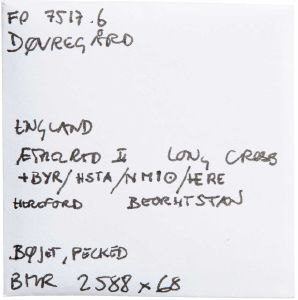 FP 7517.6
DOVREGÅRD
ENGLAND
ÆTHELRED II LONG CROSS
+BYR/HSTA/NMIO/HERE
HEREFORD BEORHTSTAN
BØJET, PECKED
BMR 2588×68